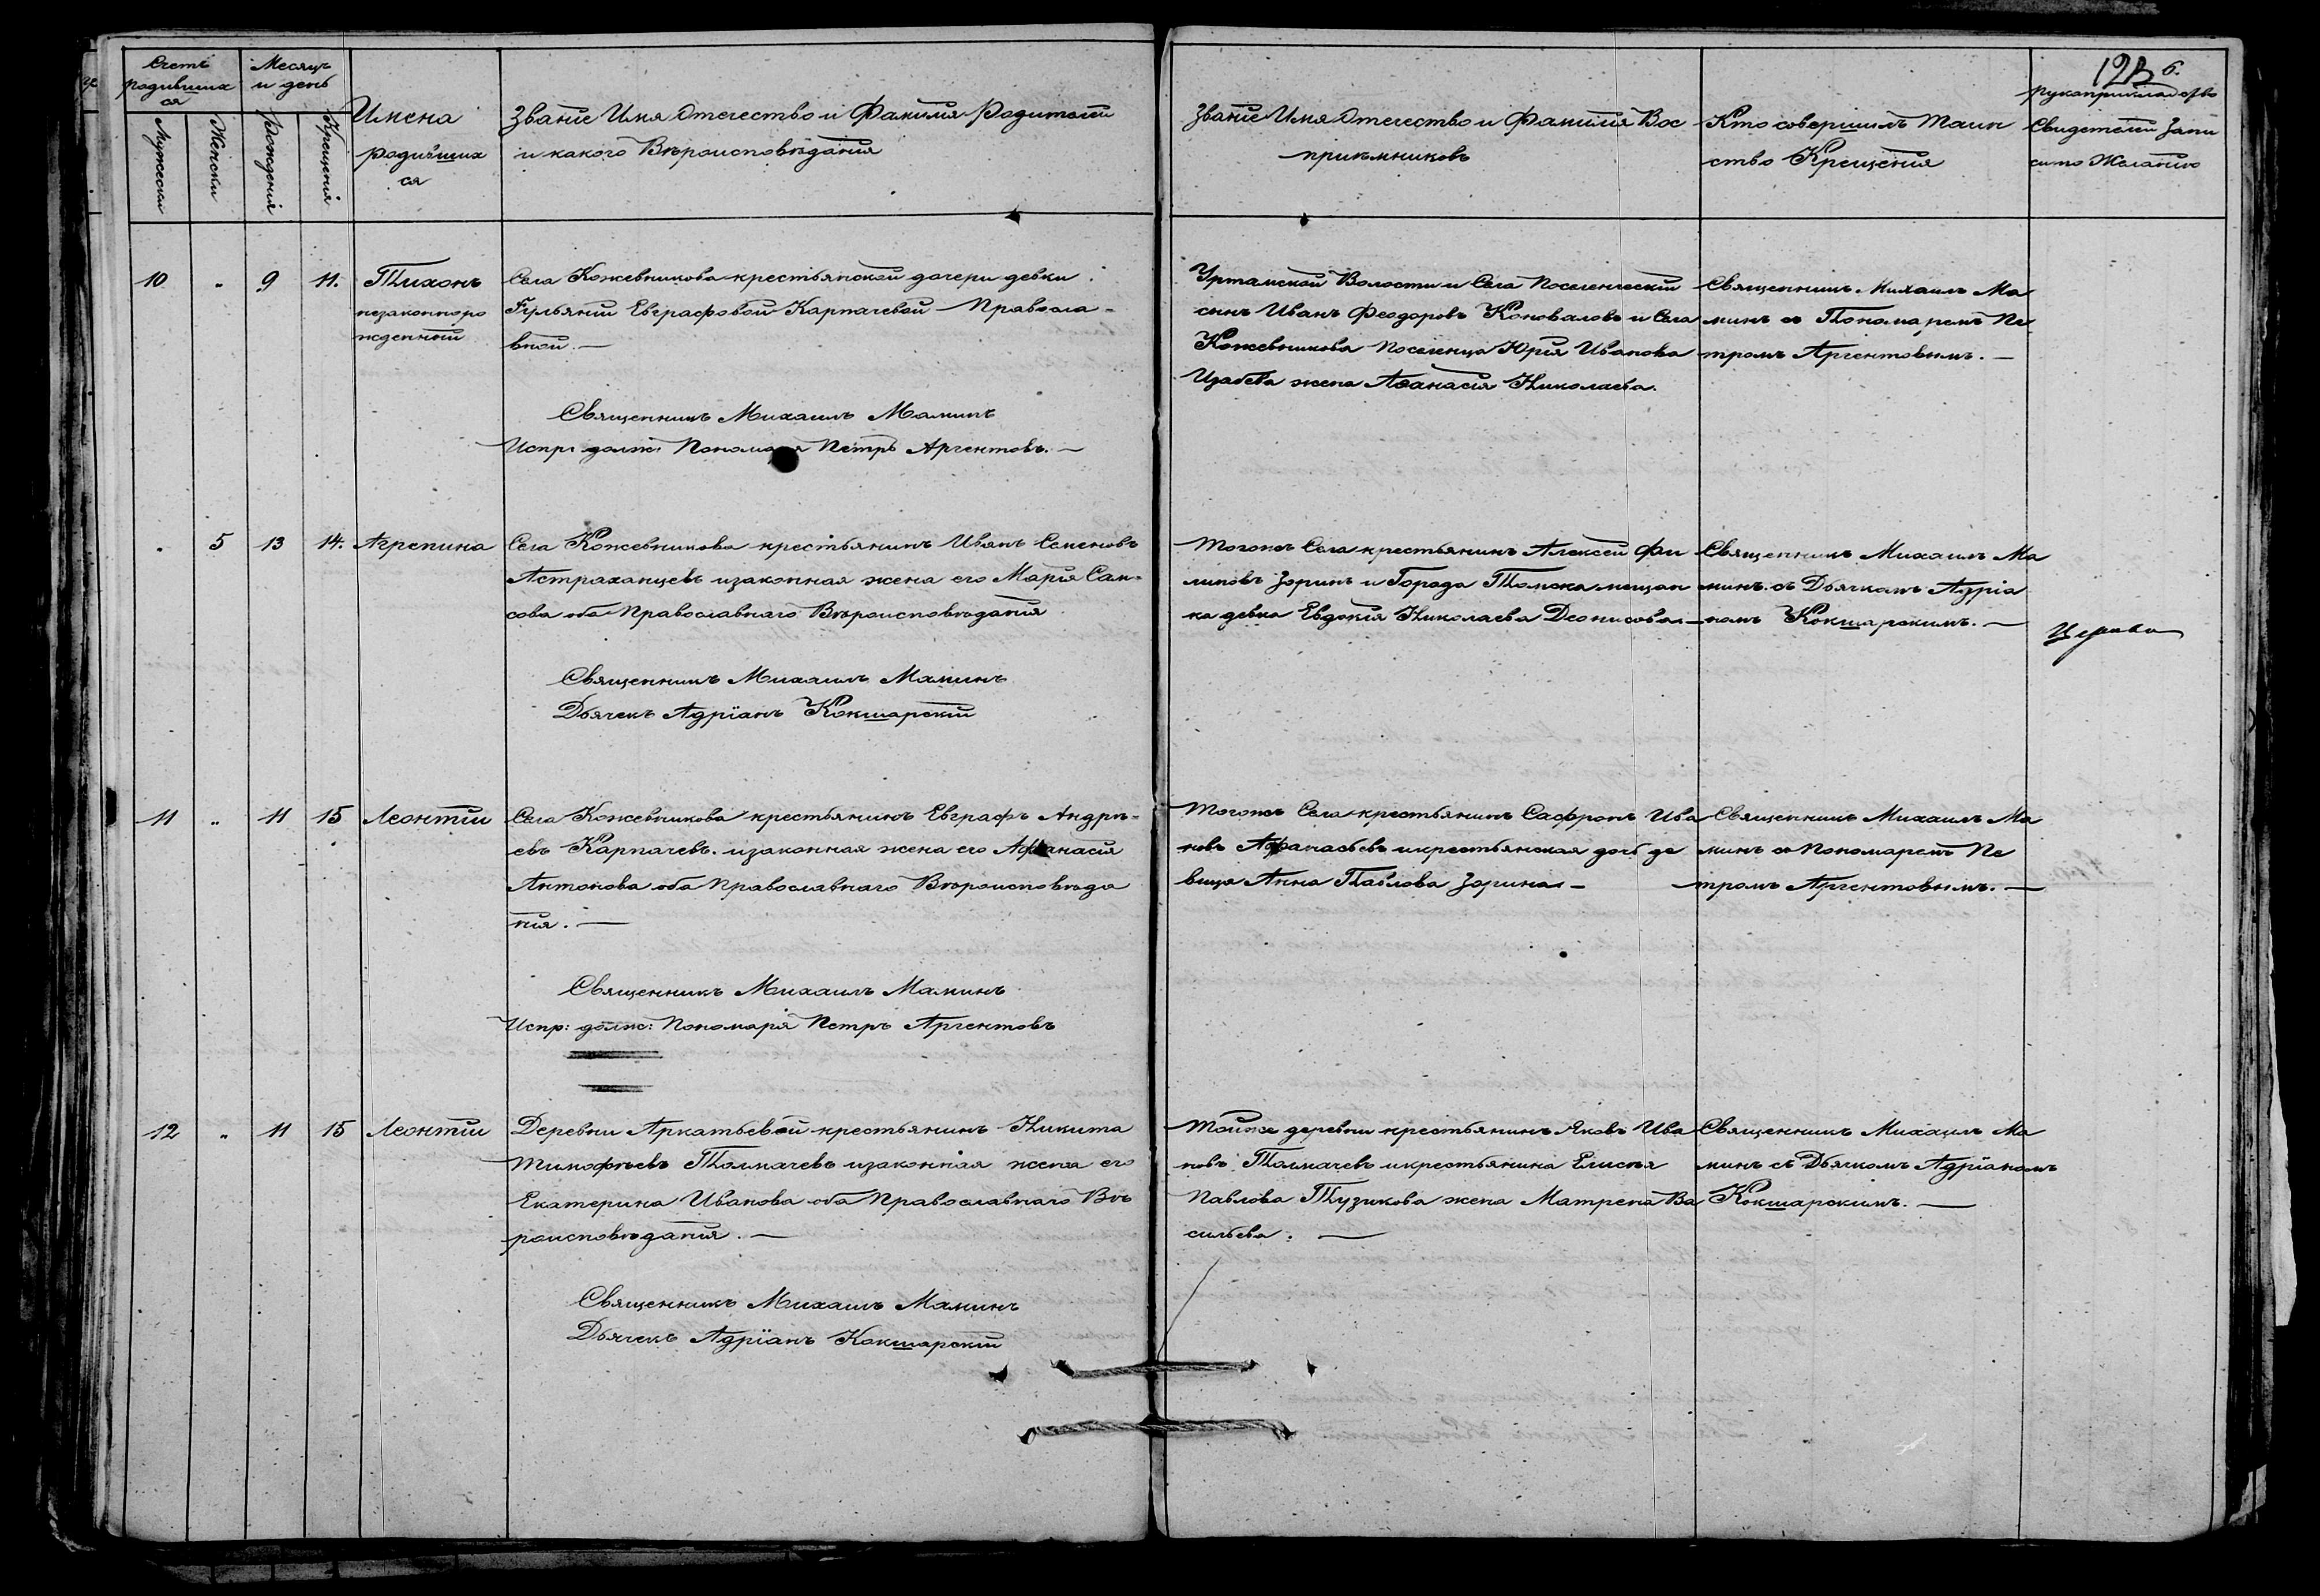 Счетъ
родивших
ся
Месяцъ
и день
Мужески
Женски
Рожденія
Крещенія
Имена
родивших
ся
Званіе Имя Отечество и Фамилія Родителей
и какого Вѣроисповѣданія
Званіе Имя Отечество и Фамилія Вос
приѣмниковъ
Кто совершилъ таин
ство Крещенія
рукоприкладство
Свидетелей Запи
си по Желанію
10 " 9 11. Тихонъ
незаконноро
жденный
Села Кожевникова крестьянской дочери девки
Гульяніи Евграфовой Карпачевой Правосла-
вной. —
Священникъ Михаилъ Маминъ
Испр: долж: Пономаря Петръ Аргентовъ. —
Уртамской Волости и Села Поселенческій
сынъ Иванъ Феодоровъ Коноваловъ и Села
Кожевникова Поселенца Юрія Иванова
жена Афанасія Николаева.
Священникъ Михаилъ Ма
минъ съ Пономаремъ Пе
тромъ Аргентовымъ. —
" 5 13 14. Агрепина
Села Кожевникова крестьянинъ Иванъ Семеновъ
Астраханцевъ изаконная жена его Марія Сам-
сова оба Православнаго Вѣроисповѣданія
Священникъ Михаилъ Маминъ
Дьячекъ Адріанъ Кокшарскій
Тогожъ Села крестьянинъ Алексей Фи
липовъ Зоринъ и Города Томска мещан
ка девка Евдокія Николаева Деонисова —
Священникъ Михаилъ Ма
минъ съ Дьячкомъ Адріа
номъ Кокшарскимъ. —
11 " 11 15 Леонтій
Села Кожевникова крестьянинъ Евграфъ Андрѣ-
евъ Карпачевъ. изаконная жена его Афанасія
Антонова оба Православнаго Вѣроисповѣда
нія. —
Священникъ Михаилъ Маминъ
Испр: долж: Пономаря Петръ Аргентовъ
Тогожъ Села крестьянинъ Сафронъ Ива
новъ Афанасьевъ икрестьянская дочь де
вица Анна Павлова Зорина —
Священникъ Михаилъ Ма
минъ съ Пономаремъ Пе
тромъ Аргентовымъ. —
12 " 11 15 Леонтій
Деревни Аркатьевой крестьянинъ Никита
Тимофѣевъ Толмачевъ изаконная жена его
Екатерина Иванова оба Православнаго Вѣ
роисповѣданія. —
Священникъ Михаилъ Маминъ
Дьячекъ Адріанъ Кокшарскій
Тойже деревни крестьянинъ Яковъ Ива
новъ Толмачевъ икрестьянина Елисѣя
Павлова Тузикова жена Матрена Ва
сильева. —
Священникъ Михаилъ Ма
минъ съ Дьячкомъ Адріаномъ
Кокшарскимъ. —